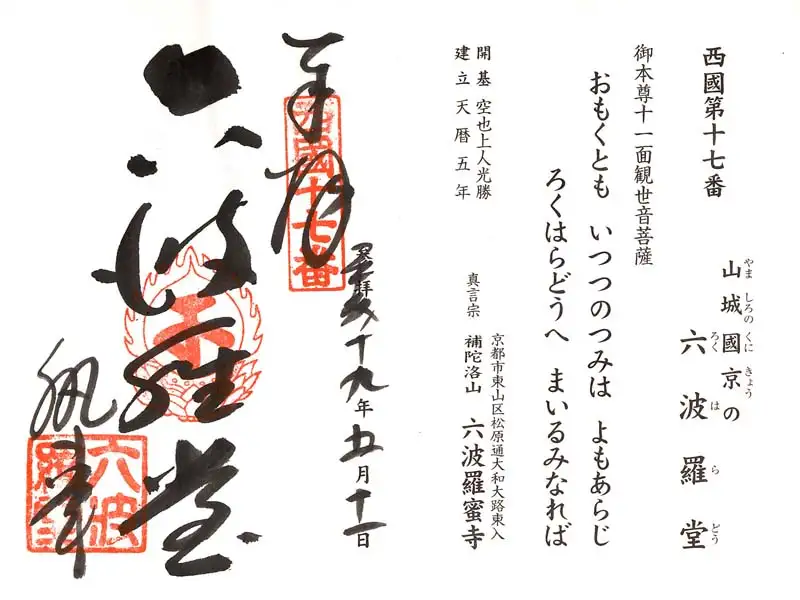 西國第十七番
やま しろの くに きょう
山城國京の
ろく は ら どう
六波羅堂
御本尊十一面観世音菩薩
おもくとも いつつのつみは よもあらじ
ろくはらどうへ まいるみなれば
開基 空也上人光勝
建立 天暦五年
京都市東山区松原通大和大路東入
真言宗 補陀洛山 六波羅蜜寺
十九年五月十一日
奉拝
西國十七番
六波羅堂
執事